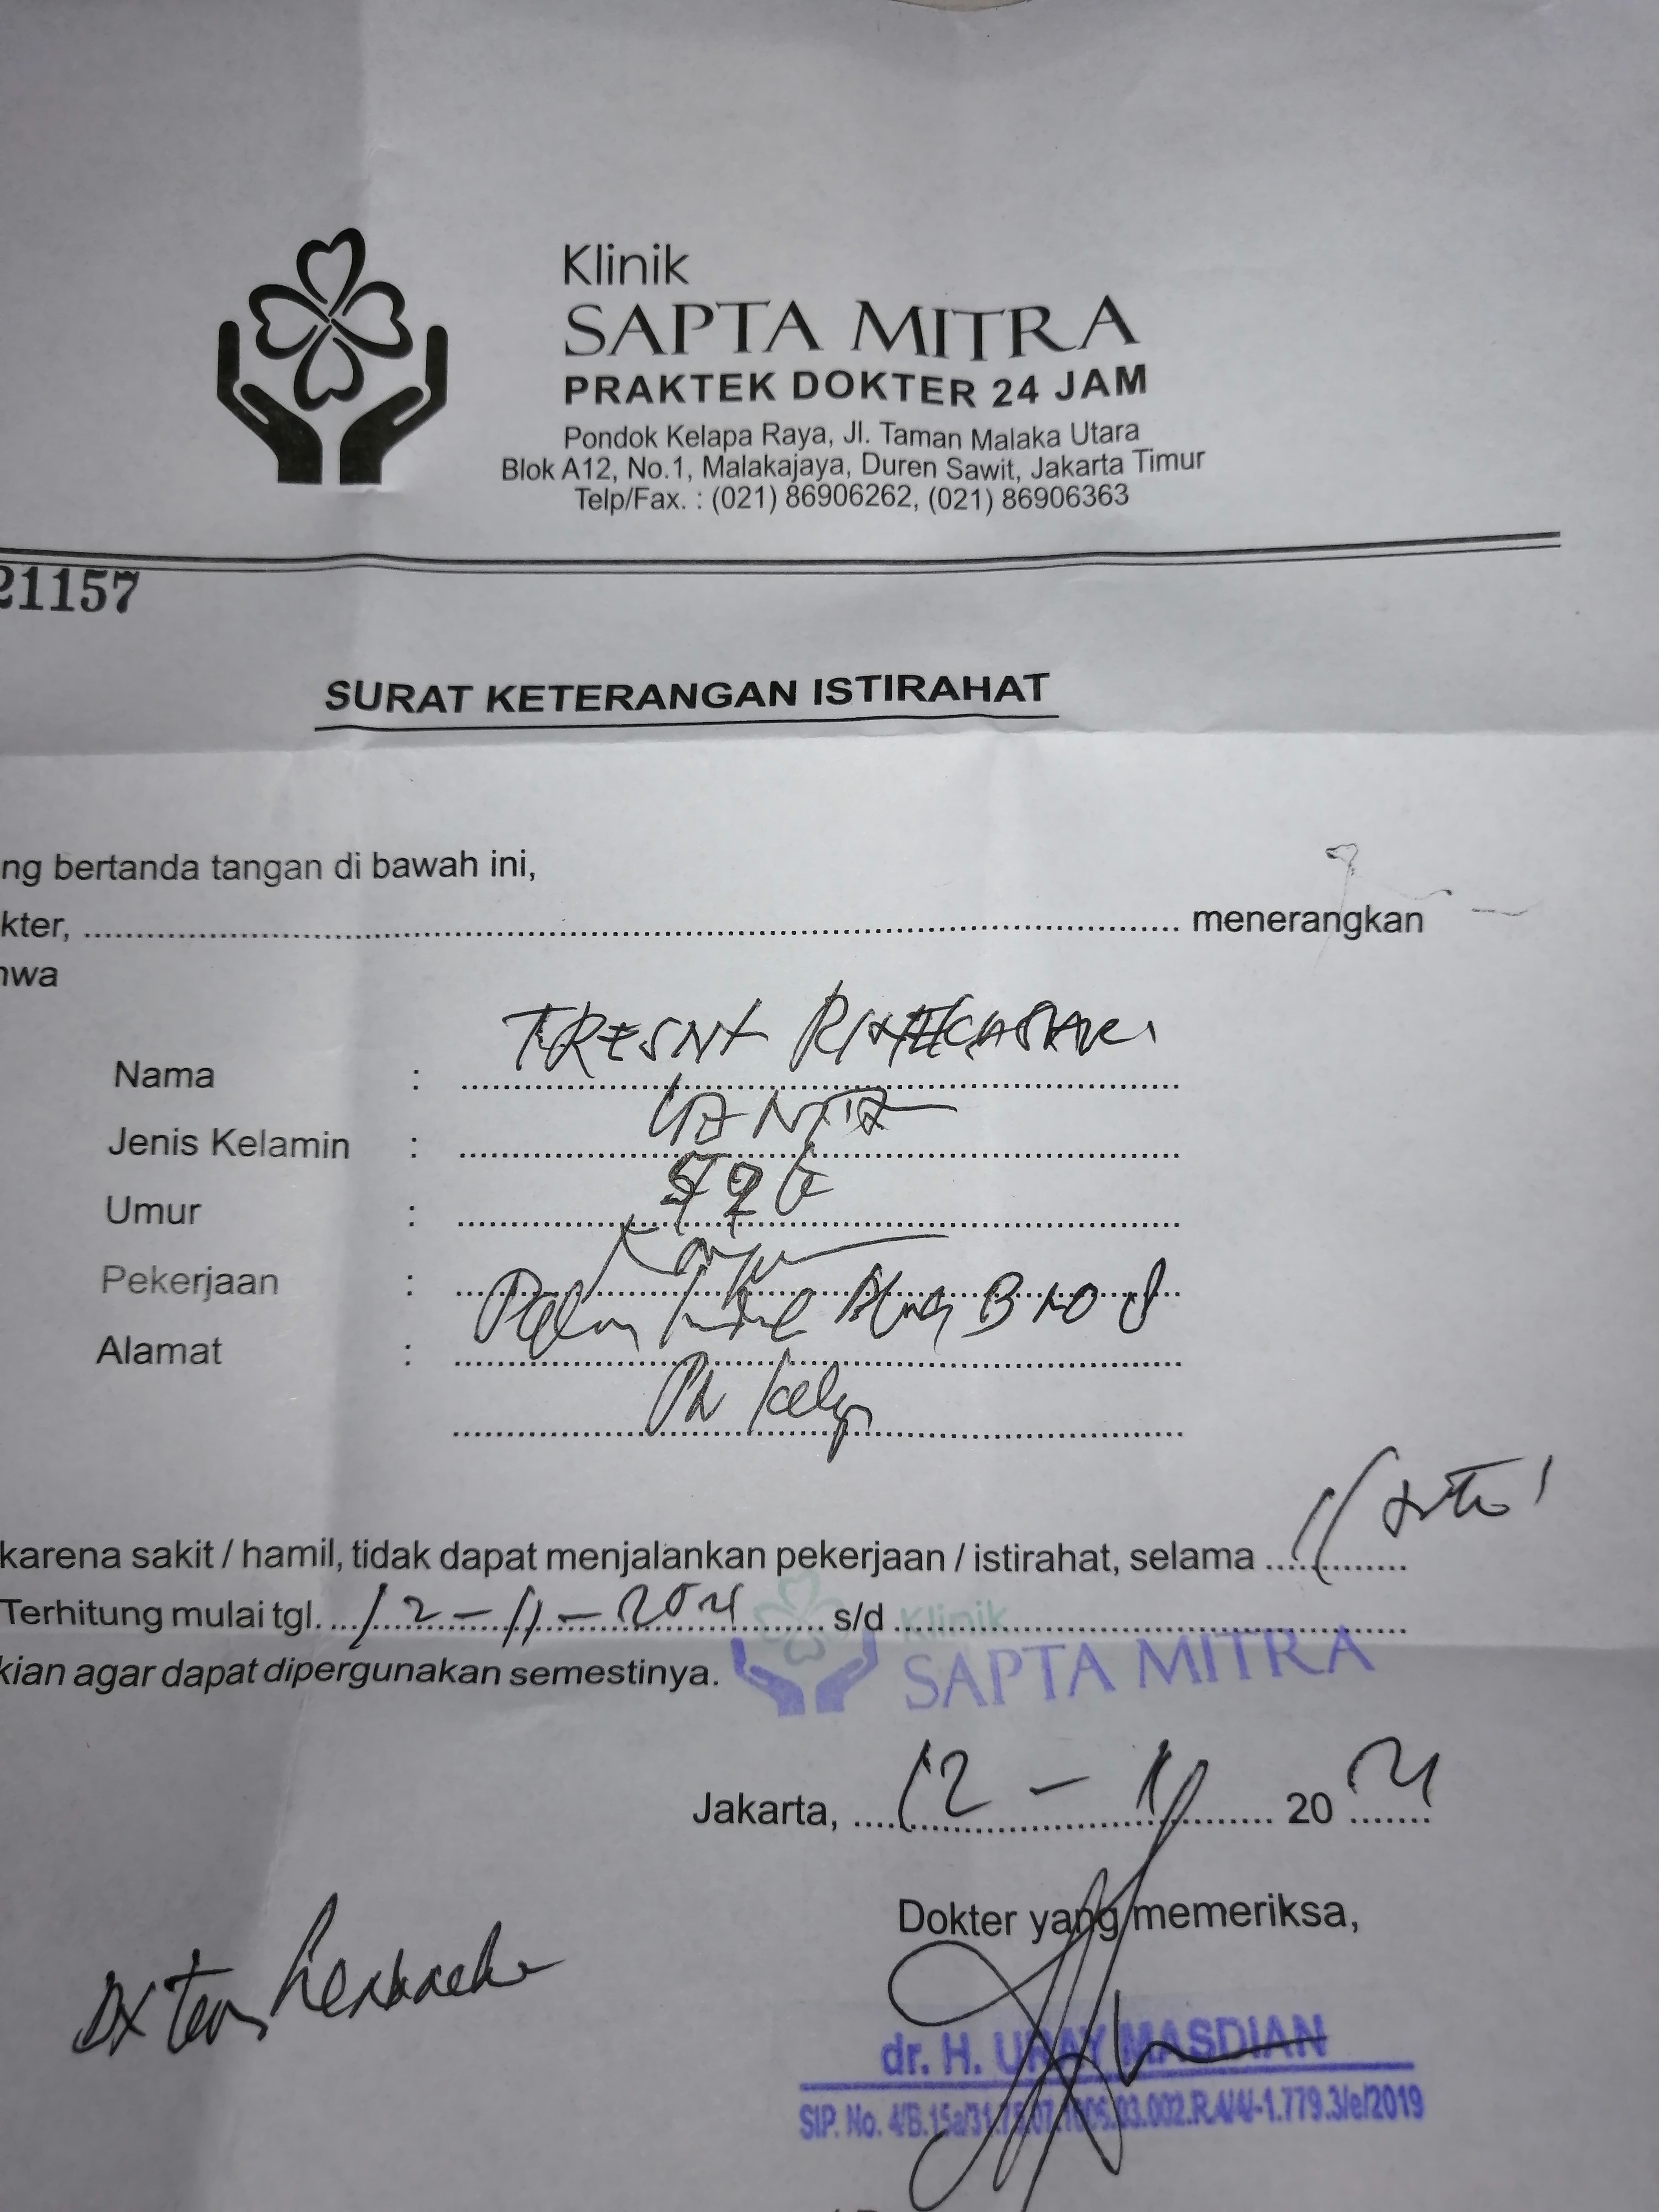 Klinik
SAPTA MITRA
PRAKTEK DOKTER 24 JAM
Pondok Kelapa Raya, Jl. Taman Malaka Utara
Blok A12, No.1, Malakajaya, Duren Sawit, Jakarta Timur
Telp/Fax. : (021) 86906262, (021) 86906363
21157
SURAT KETERANGAN ISTIRAHAT
ng bertanda tangan di bawah ini,
kter, ........ menerangkan
hwa
Nama : TRESNA
Jenis Kelamin : WANITA
Umur :
Pekerjaan :
Alamat :
karena sakit / hamil, tidak dapat menjalankan pekerjaan / istirahat, selama ........
Terhitung mulai tgl. 12-11-2021 s/d ........
kian agar dapat dipergunakan semestinya.
Klinik
SAPTA MITRA
Jakarta, 12 - 11 2021
Dokter yang memeriksa,
DX
dr. H. URAY MASDIAN
SIP. No.